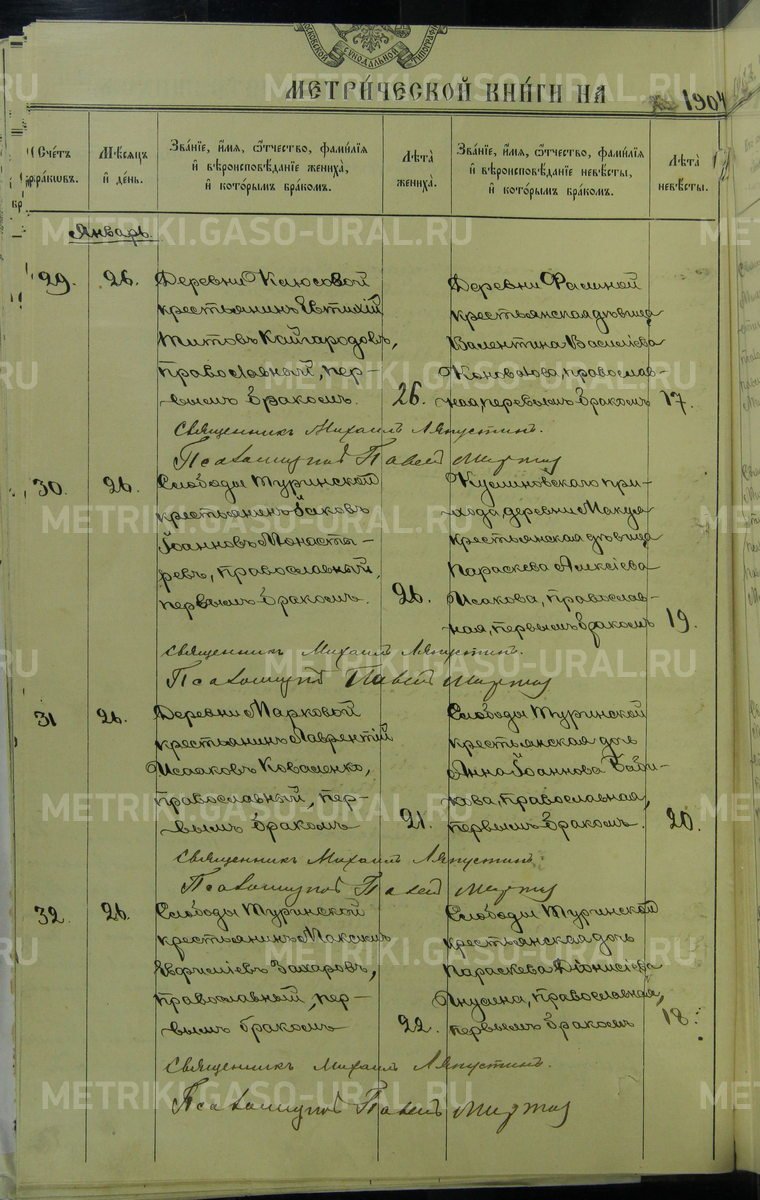 МОСКОВСКОЙ СѴНОДАЛЬНОЙ ТИПОГРАФІИ
МЕТРИ́ЧЕСКОЙ КНИ́ГИ НА 1904
Счетъ браковъ.
Мѣсяцъ и день.
Званіе, имя, отчество, фамилія и вѣроисповѣданіе жениха, и которымъ бракомъ.
Лѣта жениха.
Званіе, имя, отчество, фамилія и вѣроисповѣданіе невѣсты, и которымъ бракомъ.
Лѣта невѣсты.
Январь.
29. 26.
Деревни Клюсовой
крестьянинъ Евтихій
Титовъ Кайгородовъ,
православный, пер-
вымъ бракомъ. 26.
Деревни Фалиной
крестьянская дѣвица
Валентина Василіева
Коновалова, православ-
ная, первымъ бракомъ 17.
Священникъ Михаилъ Ляпустинъ.
Псаломщикъ Павелъ
30. 26.
Слободы Туринской
крестьянинъ Іаковъ
Іоанновъ Монасты-
ревъ, православный,
первымъ бракомъ. 26.
Кушновскаго при-
хода, деревни Макуя
крестьянская дѣвица
Параскева Алексіева
Исакова, православ-
ная, первымъ бракомъ 19.
Священникъ Михаилъ Ляпустинъ.
Псаломщикъ Павелъ
31 26.
Деревни Марковой
крестьянинъ Лаврентій
Исааковъ Коваленко,
православный, пер-
вымъ бракомъ 21.
Слободы Туринской
крестьянская дочь
Анна Іоаннова Баби-
кова, православная,
первымъ бракомъ. 20.
Священникъ Михаилъ Ляпустинъ.
Псаломщикъ Павелъ
32. 26.
Слободы Туринской
крестьянинъ Максимъ
Ефиміевъ Захаровъ,
православный, пер-
вымъ бракомъ 22.
Слободы Туринской
крестьянская дочь
Параскева Діонисіева
православная,
первымъ бракомъ 18.
Священникъ Михаилъ Ляпустинъ.
Псаломщикъ Павелъ
METRIKI.GASO-URAL.RU